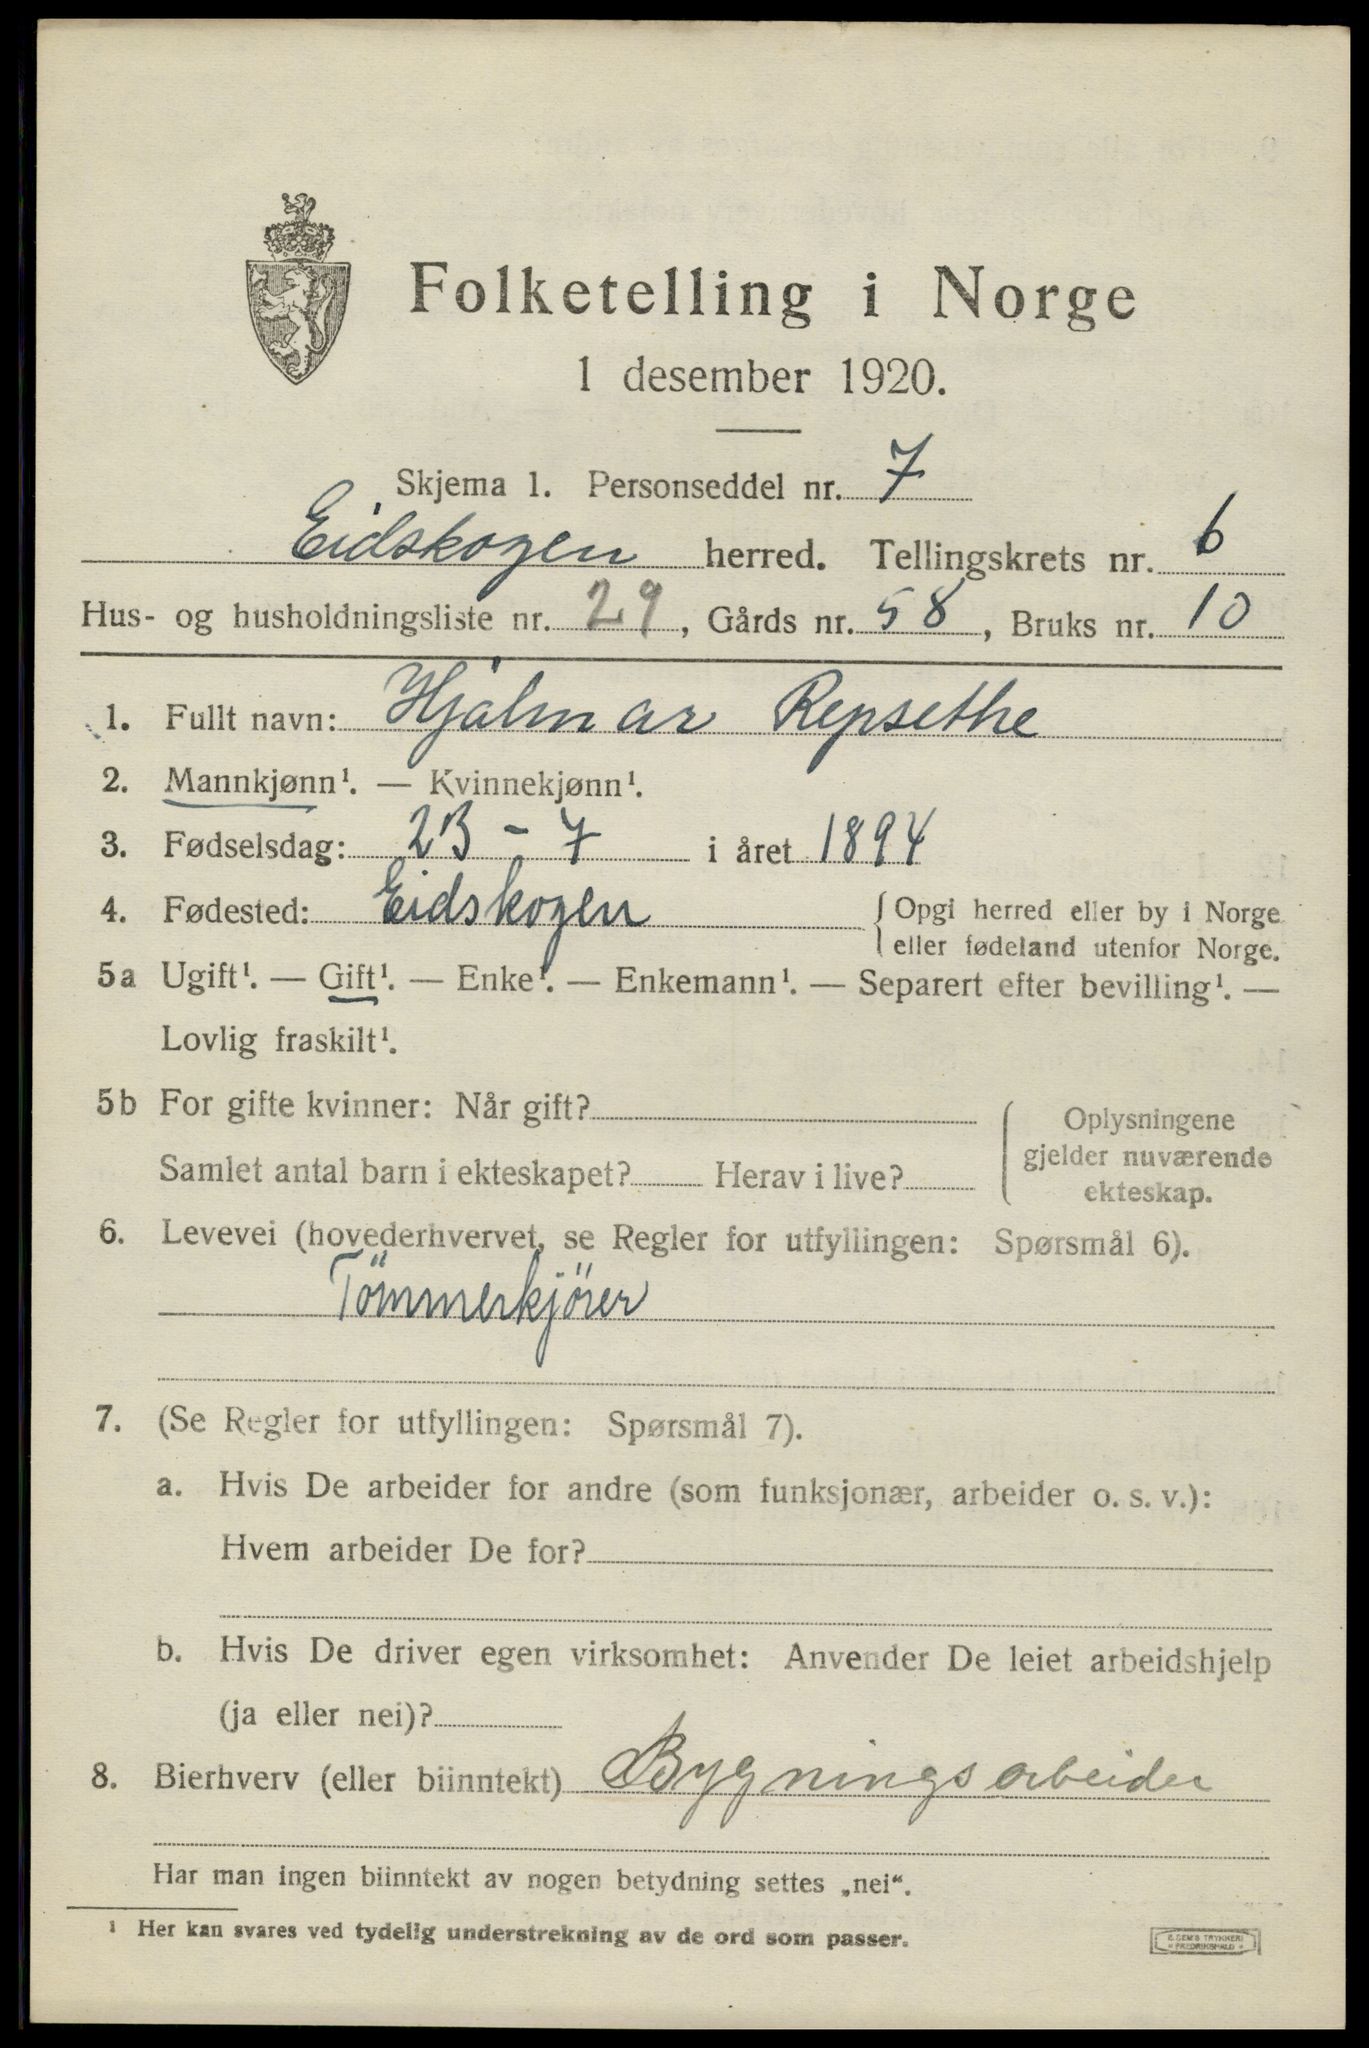 Folketelling i Norge
1 desember 1920.
Skjema 1. Personseddel nr. 7
Eidskogen herred. Tellingskrets nr. 6
Hus- og husholdningsliste nr. 29, Gårds nr. 58, Bruks nr. 10
1. Fullt navn: Hjalmar Repsethe
2. Mannkjønn¹. — Kvinnekjønn¹.
3. Fødselsdag: 23 - 7 i året 1894
4. Fødested: Eidskogen { Opgi herred eller by i Norge
eller fødeland utenfor Norge.
5a Ugift¹. — Gift¹. — Enke¹. — Enkemann¹. — Separert efter bevilling¹. —
Lovlig fraskilt¹.
5b For gifte kvinner: Når gift?
Samlet antal barn i ekteskapet? Herav i live?
Oplysningene
gjelder nuværende
ekteskap.
6. Levevei (hovederhvervet, se Regler for utfyllingen: Spørsmål 6).
Tömmerkjörer
7. (Se Regler for utfyllingen: Spørsmål 7).
a. Hvis De arbeider for andre (som funksjonær, arbeider o. s. v.):
Hvem arbeider De for?
b. Hvis De driver egen virksomhet: Anvender De leiet arbeidshjelp
(ja eller nei)?
8. Bierhverv (eller biinntekt) Bygningsarbeider
Har man ingen biinntekt av nogen betydning settes „nei“.
¹ Her kan svares ved tydelig understrekning av de ord som passer.
E. SEM'S TRYKKERI
FREDRIKSHALD